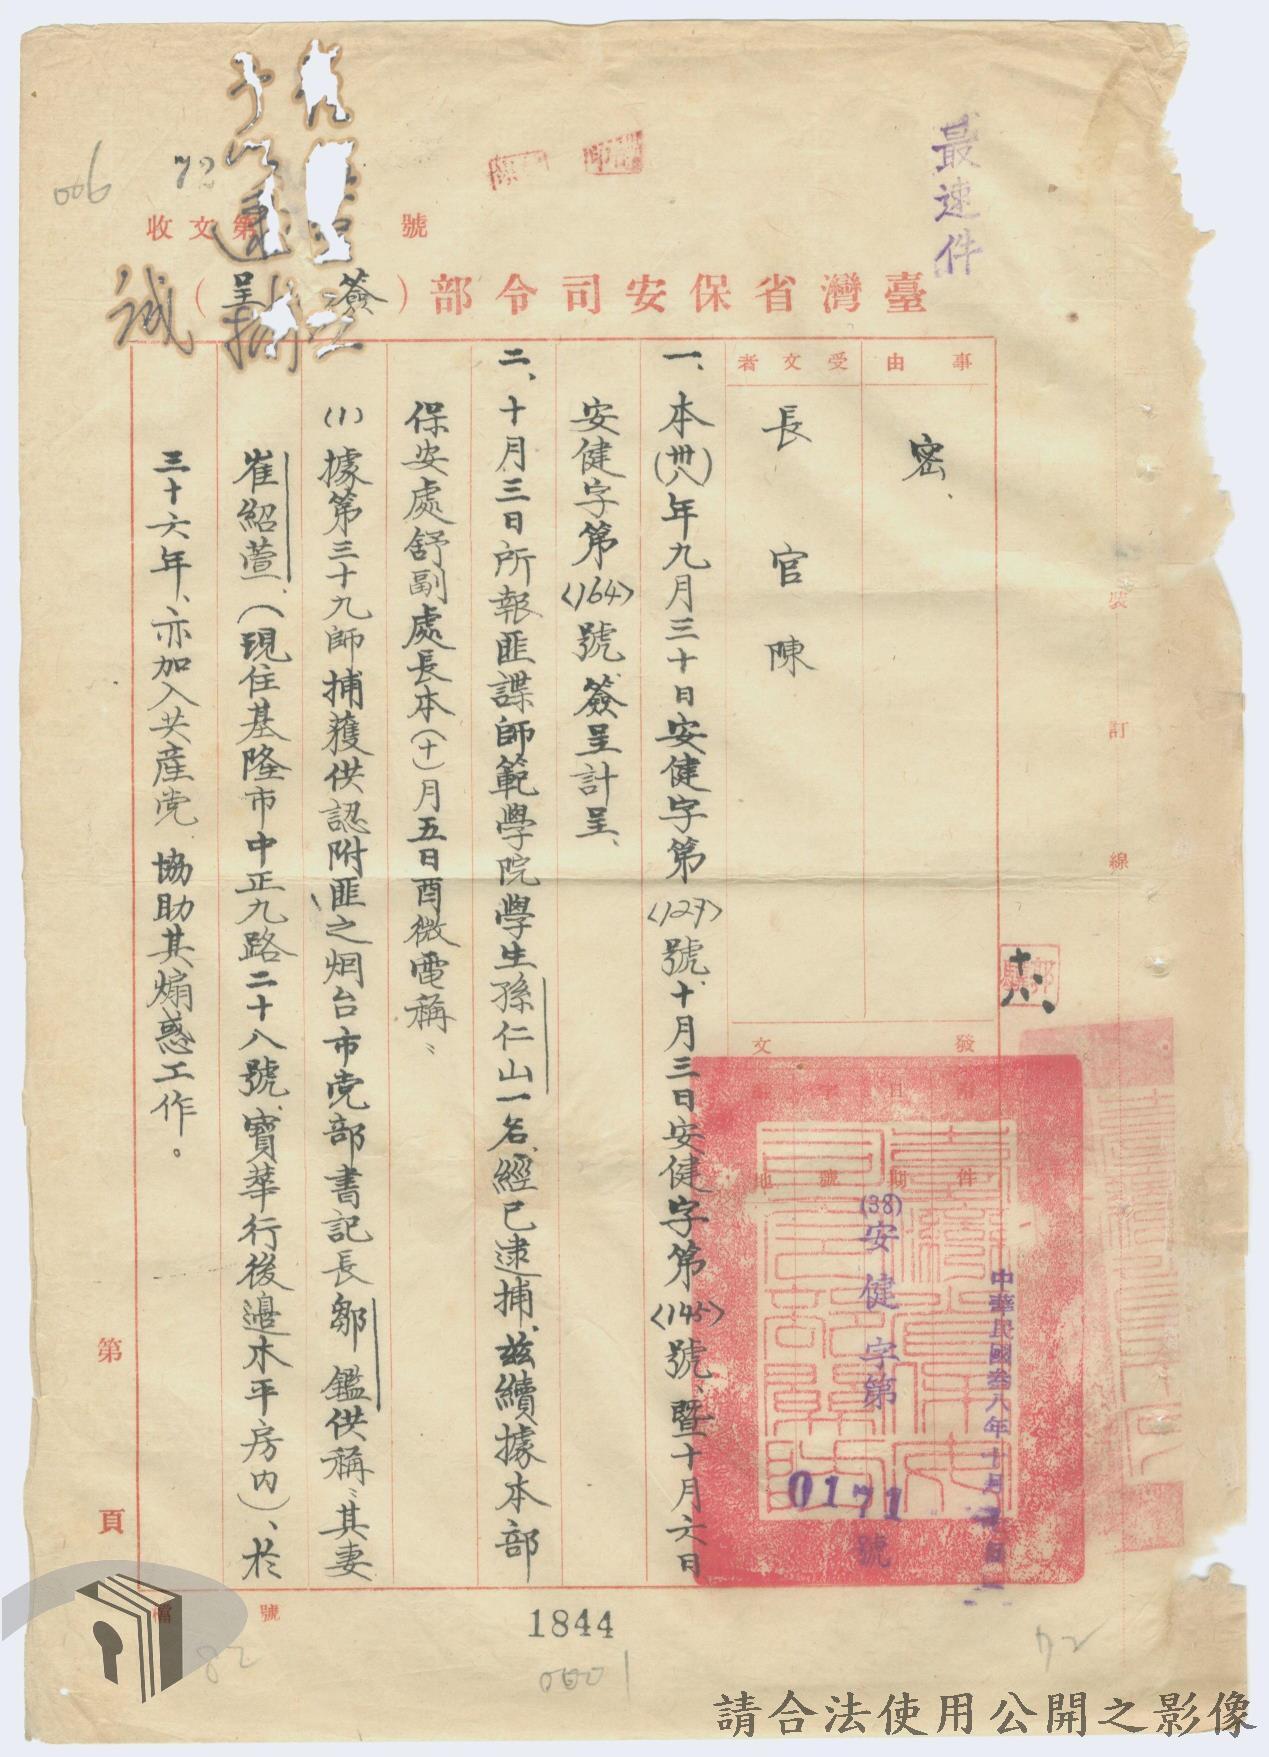 最速件
臺灣省保安司令部（簽呈）
收文第 號
006
72
事由
密、
受文者
長官陳
發文
附件
日期
字號
(38)安健字第
0171號
中華民國叁八年十月
一、本(卅八)年九月三十日安健字第<127>號、十月三日安健字第<145>號、暨十月六日
安健字第<164>號簽呈計呈、
二、十月三日所報匪諜師範學院學生孫仁山一名、經已逮捕、茲續據本部
保安處舒副處長本(十)月五日酉微電稱：
(1)據第三十九師捕獲供認附匪之烟台市党部書記長鄒鑑供稱：其妻
崔紹萱、(現住基隆市中正九路二十八號、寶華行後邉木平房內)、於
三十六年、亦加入共產党、協助其煽惑工作。
裝訂線
第頁
檔號
誠
1844
0001
82
72
請合法使用公開之影像